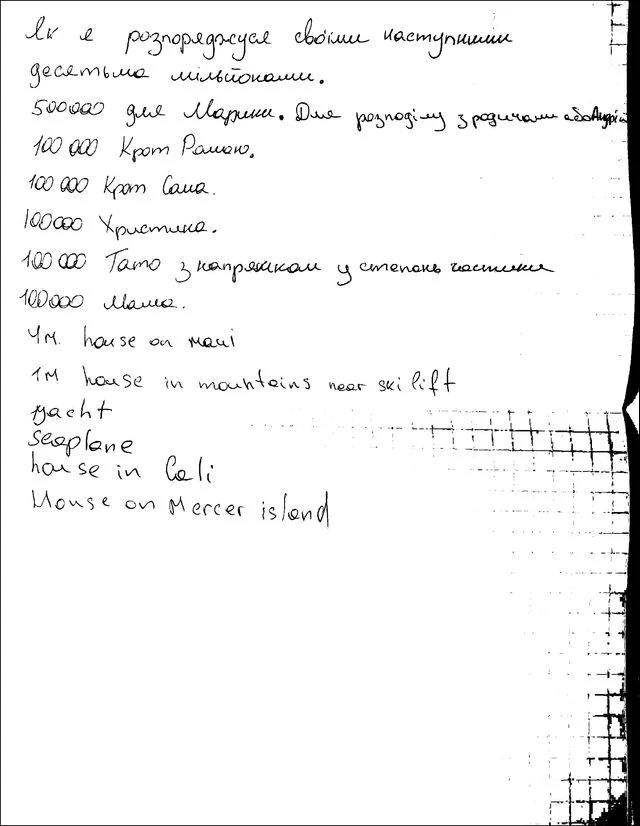 Як я розпоряджуся своїми наступними
десятьма мільйонами.
500000 для Марини. Для розподілу з родичами або Андрій
100 000 Крот Рамаю.
100 000 Крот Саша.
100000 Христина.
100 000 Тато з напрямком у степень частини
100000 Мама.
4м. house on Maui
1м house in mountains near ski lift
yacht
seaplane
house in Cali
House on Mercer island